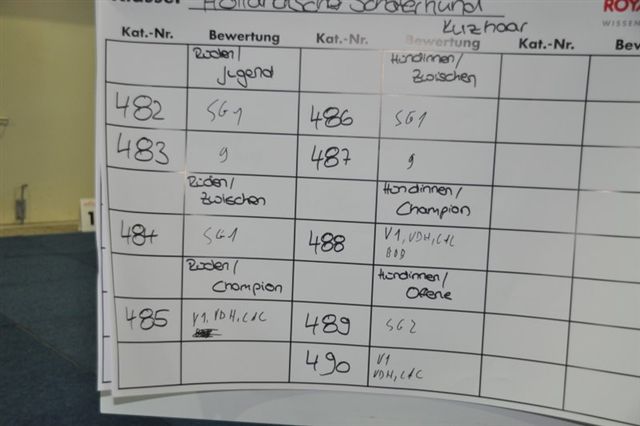 Holländische Schäferhund
ROYA
WISSEN
Kurzhaar
Kat.-Nr. Bewertung Kat.-Nr. Bewertung Kat.-Nr. Bew
Rüden/ Hündinnen/
Jugend Zwischen
482 SG1 486 SG1
483 g 487 g
Rüden/ Hündinnen/
Zwischen Champion
484 SG1 488 V1, VDH, CAC
BOB
Rüden/ Hündinnen/
Champion Offene
485 V1, VDH, CAC 489 SG2
490 V1
VDH, CAC
1